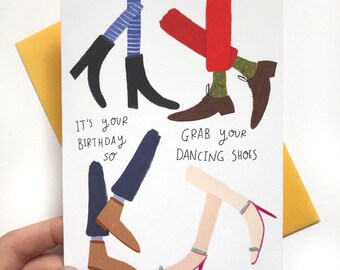 IT'S YOUR
BIRTHDAY
SO
GRAB YOUR
DANCING SHOES